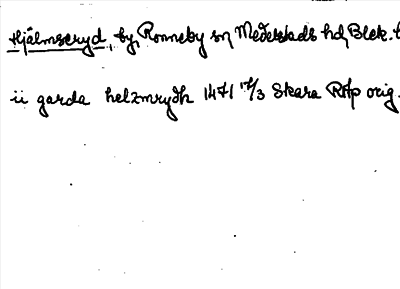 Hjälmseryd, by, Ronneby sn Medelstads hd, Blek.
ii garda helzmrydh 1471 17/3 Skara RAp orig.